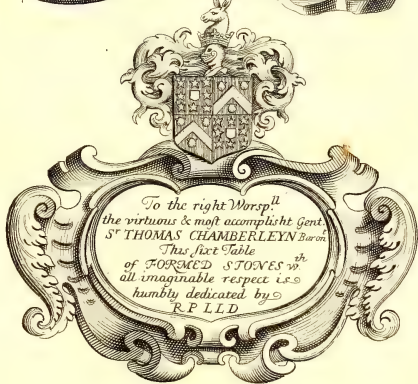 To the right Worsp.ll
the virtuous & most accomplisht Gent.
Sr THOMAS CHAMBERLEYN Baront
This sixt Table
of FORMED STONES wth
all imaginable respect is
humbly dedicated by
R P LLD